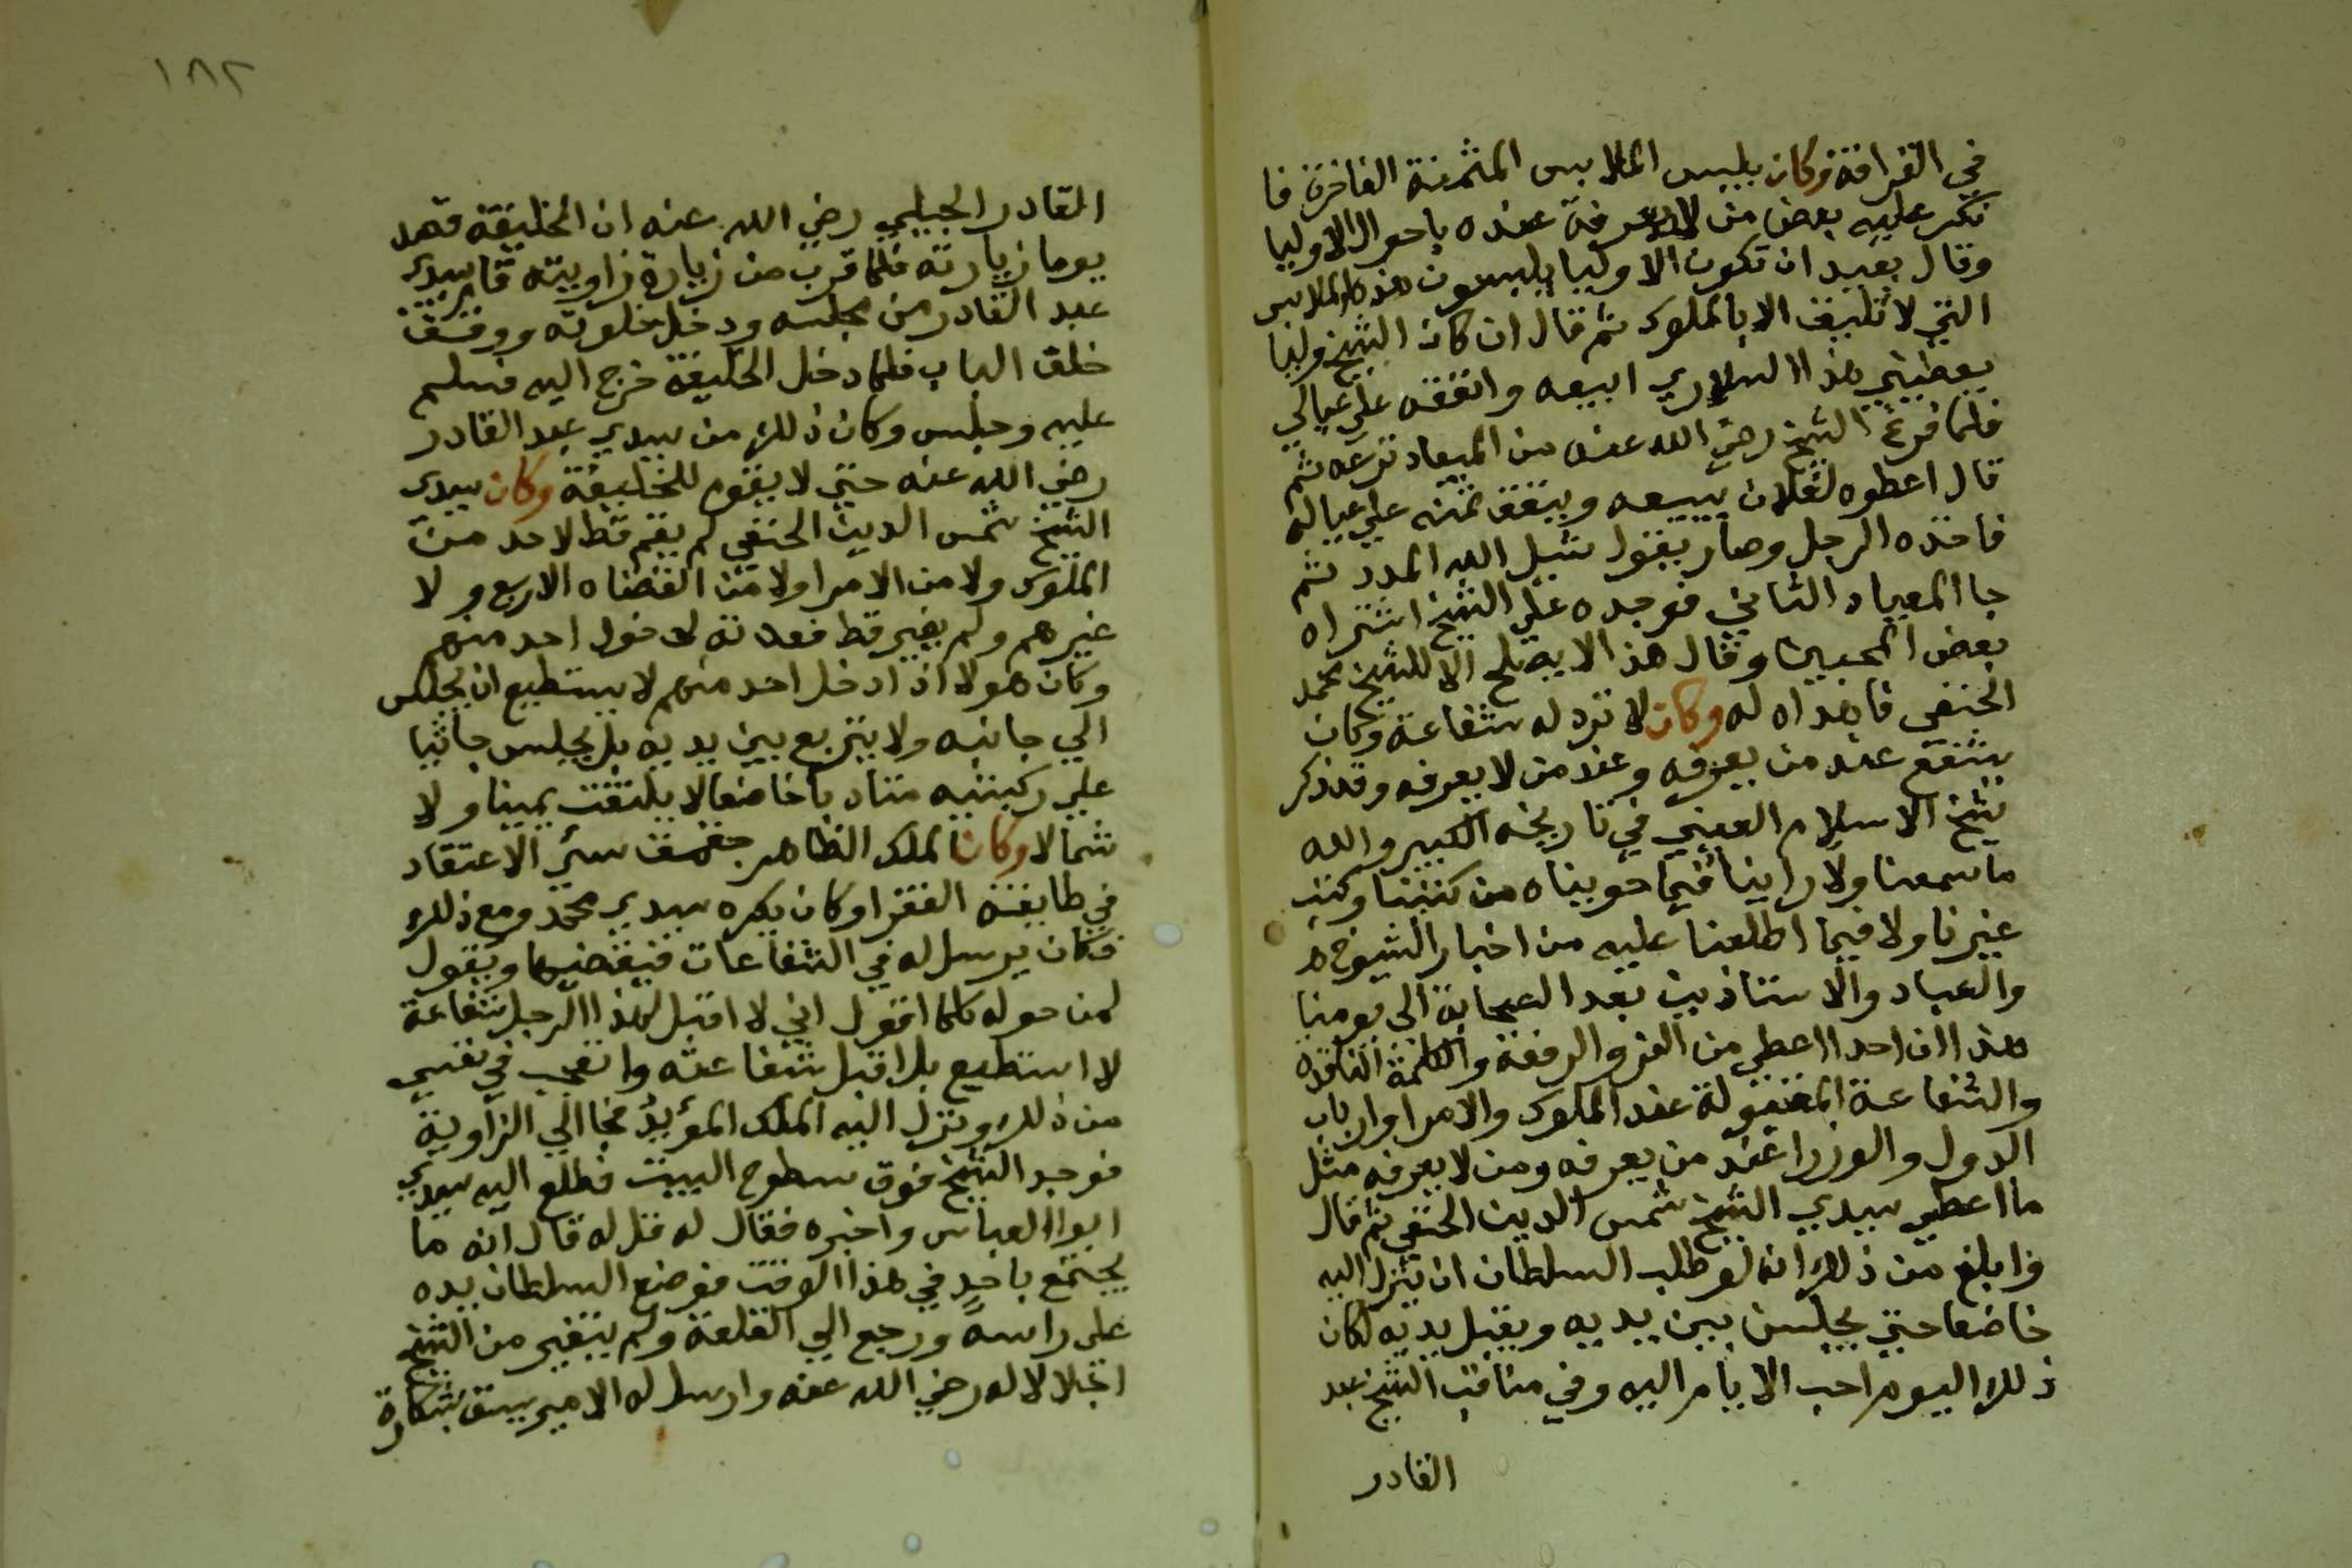 في القرافة وكان يلبس الملابس المثمنة الفاخرة فا
نكر عليه بعض من لا معرفة عنده باحوال الاوليا
وقال بعيد ان تكون الاوليا يلبسون هذه الملابس
التي لا تليق الا بالملوك ثم قال ان كان الشيخ وليا
يعطيني هذا السلاري ابيعه وانفقه علي عيالي
فلما فرغ الشيخ رضي الله عنه من الميعاد نزعه ثم
قال اعطوه لفلان يبيعه وينفق ثمنه علي عياله
فاخذه الرجل وصار يقول شيل الله المدد ثم
جا المعياد الثاني فوجده علي الشيخ اشتراه
بعض المحبين وقال هذا لا يصلح الا للشيخ محمد
الحنفي فاهداه له وكان لا ترد له شفاعة وكان
يشفع عند من يعرفه وعند من لا يعرفه وقد ذكر
شيخ الاسلام العيني في تاريخه الكبير والله
ما سمعنا ولا راينا فيما حويناه من كتبنا وكتب
غيرنا ولا فيما اطلعنا عليه من اخبار الشيوخ
والعباد والاستاذين بعد الصحابة الي يومنا
هذا ان احدا اعطي من العز والرفعة والكلمة النافذه
والشفاعة المقبولة عند الملوك والامرا وارباب
الدول والوزرا عند من يعرفه ومن لا يعرفه مثل
ما اعطي سيدي الشيخ شمس الدين الحنفي ثم قال
وابلغ من ذلك انه لو طلب السلطان ان ينزل اليه
خاضعا حتي يجلس بين يديه ويقبل يديه لكان
ذلك اليوم احب الايام اليه وفي مناقب الشيخ عبد
القادر
١٨٢
القادر الجيلي رضي الله عنه ان الخليفة قصد
يوما زيارته فلما قرب من زيارة زاويته قام سيدي
عبد القادر من مجلسه ودخل خلوته ووقف
خلف الباب فلما دخل الخليفة خرج اليه فسلم
عليه وجلس وكان ذلك من سيدي عبد القادر
رضي الله عنه حتي لا يقوم للخليفة وكان سيدي
الشيخ شمس الدين الحنفي لم يقم قط لاحد من
الملوك ولا من الامرا ولا من القضاه الاربع ولا
غيرهم ولم يغير قط قعدته لدخول احد منهم
وكان هولا اذا دخل احد منهم لا يستطيع ان يجلس
الي جانبه ولا يتربع بين يديه بل يجلس جاثيا
علي ركبتيه متادبا خاضعا لا يلتفت يمينا ولا
شمالا وكان الملك الظاهر جقمق سيّ الاعتقاد
في طايفة الفقرا وكان يكره سيدي محمد ومع ذلك
فكان يرسل له في الشفاعات فيقضيها ويقول
لمن حوله كلما اقول اني لا اقبل لهذا الرجل شفاعة
لا استطيع بل اقبل شفاعته واتعجب في نفسي
من ذلك ونزل اليه الملك المؤيد فجا الي الزاوية
فوجد الشيخ فوق سطوح البيت فطلع اليه سيدي
ابوا العباس واخبره فقال له قل له قال انه ما
يجتمع باحد في هذا الوقت فوضع السلطان يده
علي راسه ورجع الي القلعة ولم يتغير من الشيخ
اجلالا له رضي الله عنه وارسل له الامير بشكارة